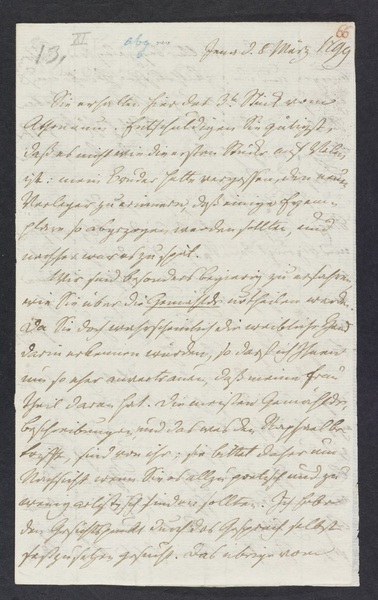 13,
XI
abg.
66
Jena d. 8 März 1799
Sie erhalten hier das 3te Stück vom
Athenäum. Entschuldigen Sie gütigst,
daß es nicht wie die ersten Stücke auf Velin
ist: mein Bruder hatte vergessen, den neuen
Verleger zu erinnern, daß einige Exem-
plare so abgezogen werden sollten, und
nachher war es zu spät.
Wir sind besonders begierig zu erfahren,
wie Sie über die Gemählde urtheilen werden.
Da Sie doch wahrscheinlich die weibliche Hand
darin erkennen würden, so darf ich Ihnen
um so eher anvertrauen, daß meine Frau
Theil daran hat. Die meisten Gemählde-
beschreibungen, und das was den Raphael be-
trifft, sind von ihr; sie bittet daher um
Nachsicht wenn Sie es allzu poetisch und zu
wenig artistisch finden sollten. Ich habe
den Gesichtspunkt durch das Gespräch selbst
festzusetzen gesucht. Das übrige vom